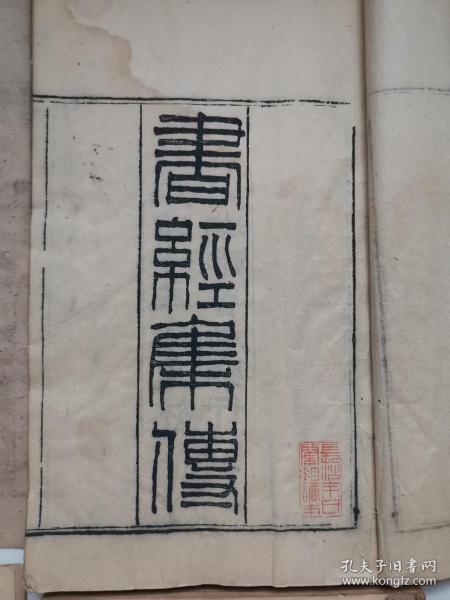 書經集傳
孔夫子旧书网
www.kongfz.com